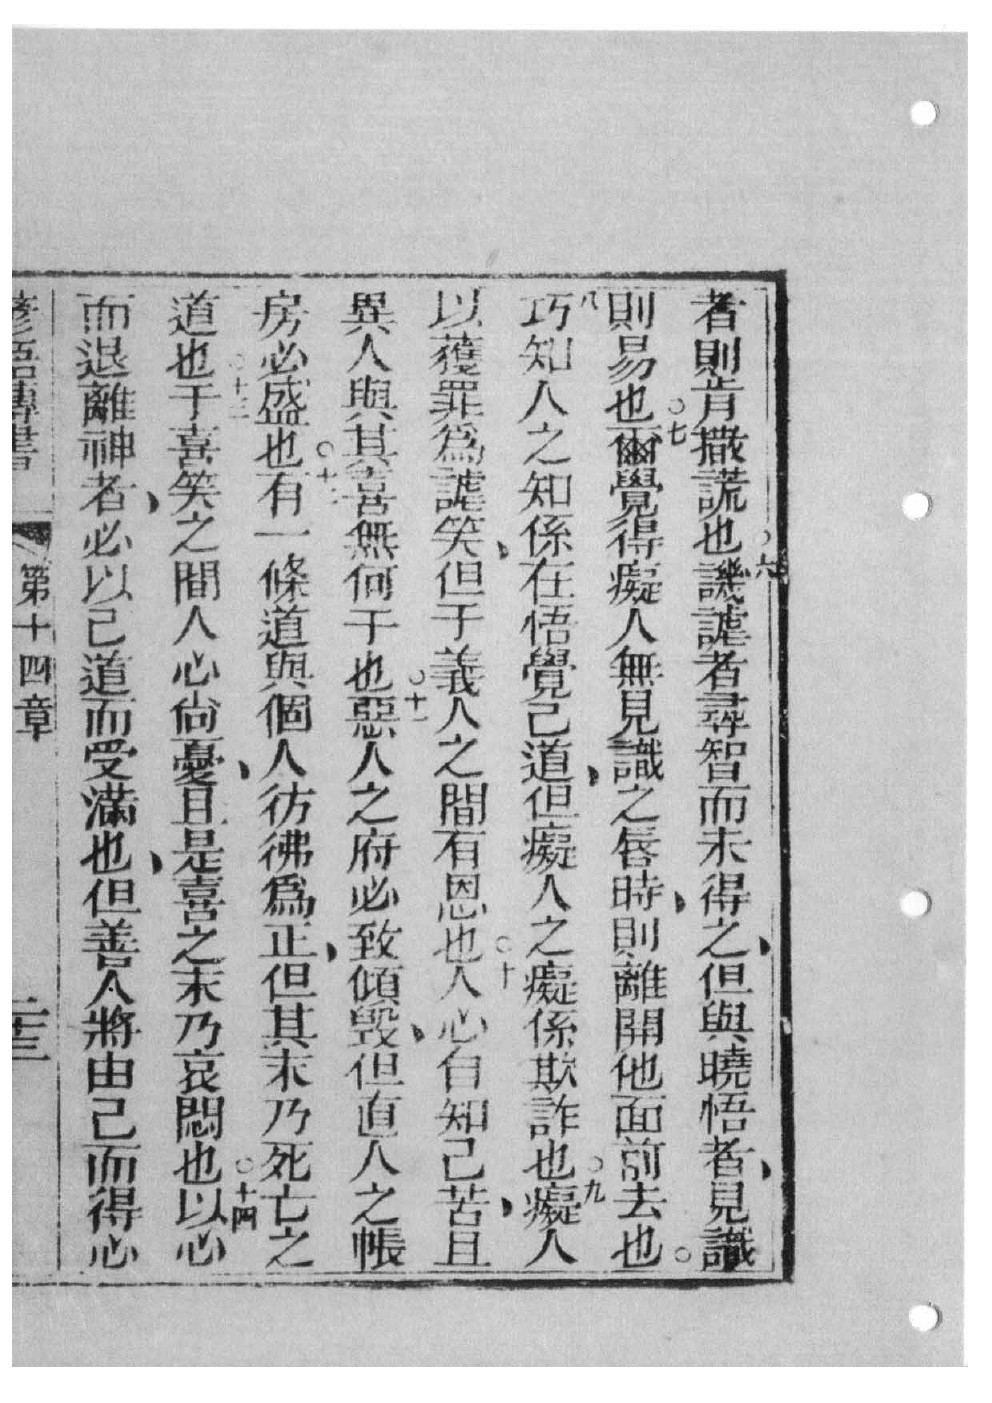 者則肯撒謊也○六譏謔者尋智而未得之、但與曉悟者、見識
則易也○七爾覺得癡人無見識之唇時、則離開他面前去也○
八巧知人之知係在悟覺己道、但癡人之癡係欺詐也○九癡人
以獲罪爲謔笑、但于義人之間有恩也○十人心自知己苦、且
異人與其喜無何于也○十一惡人之府必致傾毀、但直人之帳
房必盛也○十二有一條道與個人彷彿爲正、但其末乃死亡之
道也○十三于喜笑之間人心尙憂、且是喜之末乃哀悶也○十四以心
而退離神者、必以己道而受滿也、但善人將由己而得心
諺語傳書 第十四章 二十三